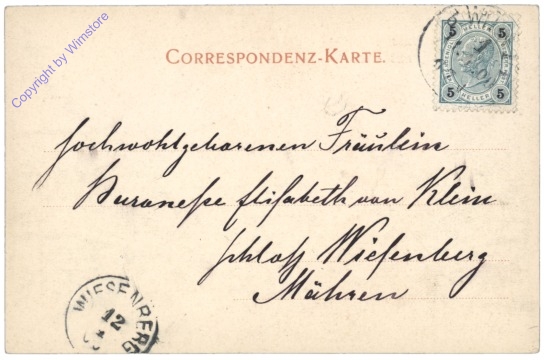 Copyright by Wimstore
CORRESPONDENZ-KARTE.
5 5
HELLER
5 5
Hochwohlgeborenen Fräulein
Baronesse Elisabeth von Klein
Schloß Wiesenberg
Mähren
WIESENBERG
12